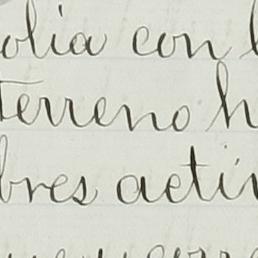 olia con l
terreno h
bres acti